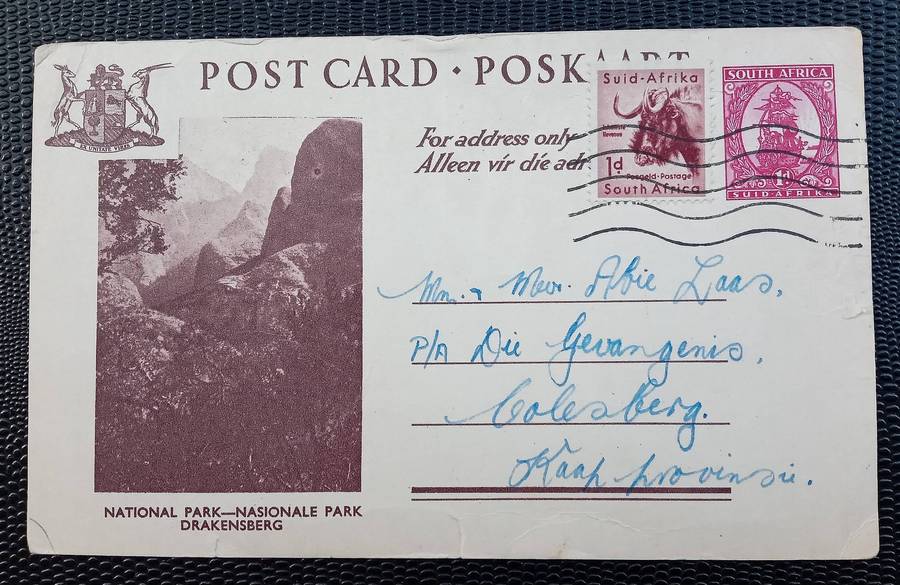 POST CARD · POSKAART
EX UNITATE VIRES
For address only
Alleen vir die adr
Suid-Afrika
Inkomste
Revenue
1d
Posgeld·Postage
South Africa
SOUTH AFRICA
1D
SUID-AFRIKA
Mnr. & Mev. Abie Laas,
P/A Die Gevangenis,
Colesberg.
Kaap provinsie.
NATIONAL PARK—NASIONALE PARK
DRAKENSBERG